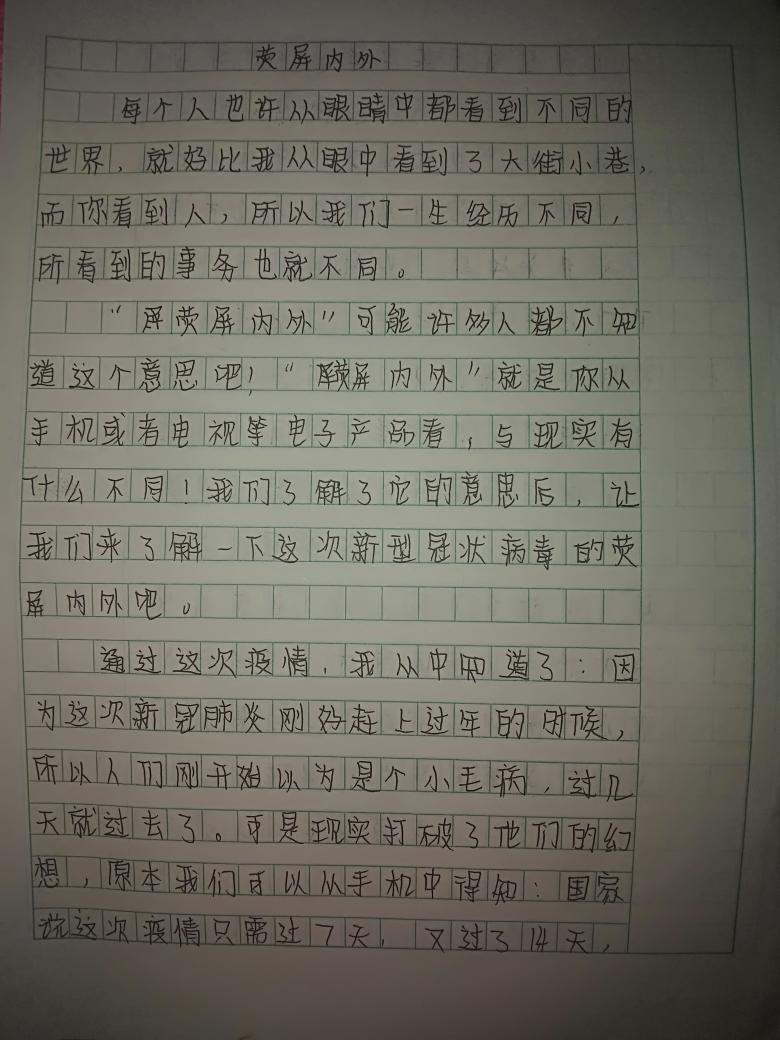 荧屏内外
每个人也许从眼睛中都看到不同的
世界，就好比我从眼中看到了大街小巷，
而你看到人，所以我们一生经历不同，
所看到的事务也就不同。
“屏荧屏内外”可能许多人都不知
道这个意思吧！“荧屏内外”就是你从
手机或者电视等电子产品看，与现实有
什么不同！我们了解了它的意思后，让
我们来了解一下这次新型冠状病毒的荧
屏内外吧。
通过这次疫情，我从中知道了：因
为这次新冠肺炎刚好赶上过年的时候，
所以人们刚开始以为是个小毛病，过几
天就过去了。可是现实打破了他们的幻
想，原本我们可以从手机中得知：国家
说这次疫情只需过7天，又过了14天，